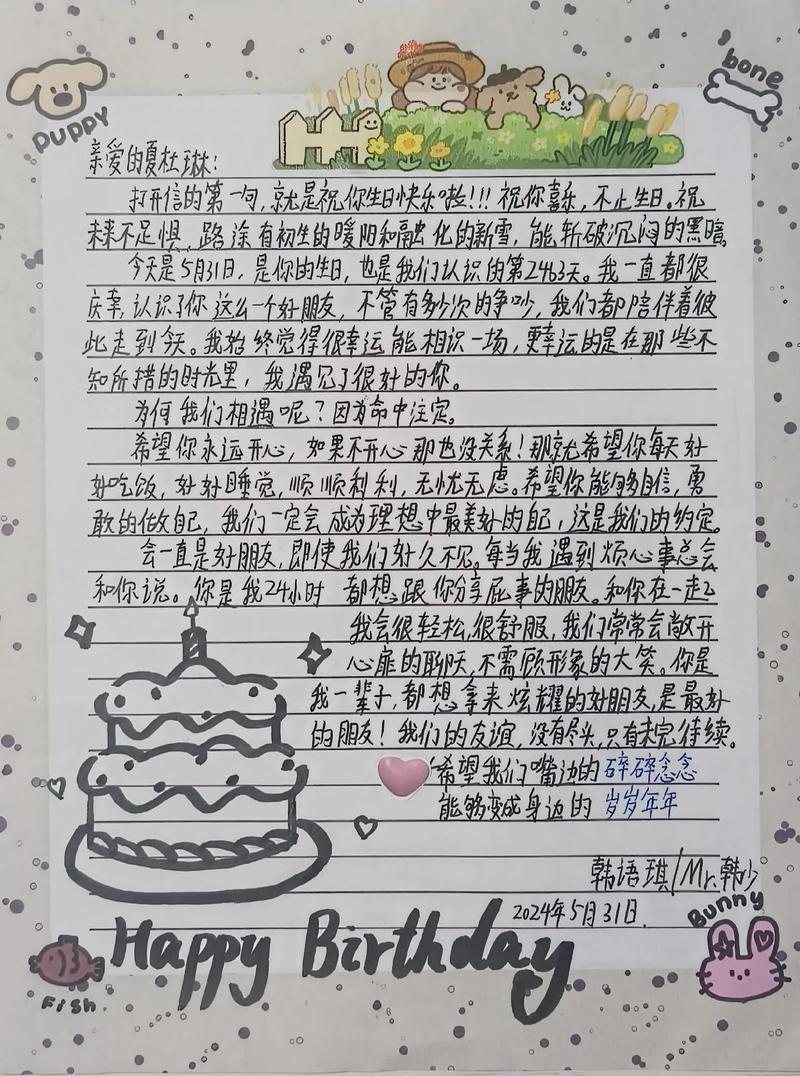 PUPPY
bone
亲爱的夏杜琳：
打开信的第一句，就是祝你生日快乐啦！！！祝你喜乐，不止生日。祝
未来不足惧，路途有初生的暖阳和融化的新雪，能斩破沉闷的黑暗。
今天是5月31日，是你的生日，也是我们认识的第2463天。我一直都很
庆幸，认识了你这么一个好朋友，不管有多少次的争吵，我们都陪伴着彼
此走到今天。我始终觉得很幸运能相识一场，更幸运的是在那些不
知所措的时光里，我遇见了很好的你。
为何我们相遇呢？因为命中注定。
希望你永远开心，如果不开心那也没关系！那就希望你每天好
好吃饭，好好睡觉，顺顺利利，无忧无虑。希望你能够自信，勇
敢的做自己，我们一定会成为理想中最美好的自己，这是我们的约定。
会一直是好朋友，即使我们好久不见。每当我遇到烦心事总会
和你说。你是我24小时都想跟你分享屁事的朋友。和你在一起
我会很轻松，很舒服，我们常常会敞开
心扉的聊天，不需顾形象的大笑。你是
我一辈子，都想拿来炫耀的好朋友，是最好
的朋友！我们的友谊，没有尽头，只有未完待续。
希望我们嘴边的碎碎念念
能够变成身边的岁岁年年
韩语琪/Mr.韩少
2024年5月31日.
Happy Birthday
Bunny
Fish